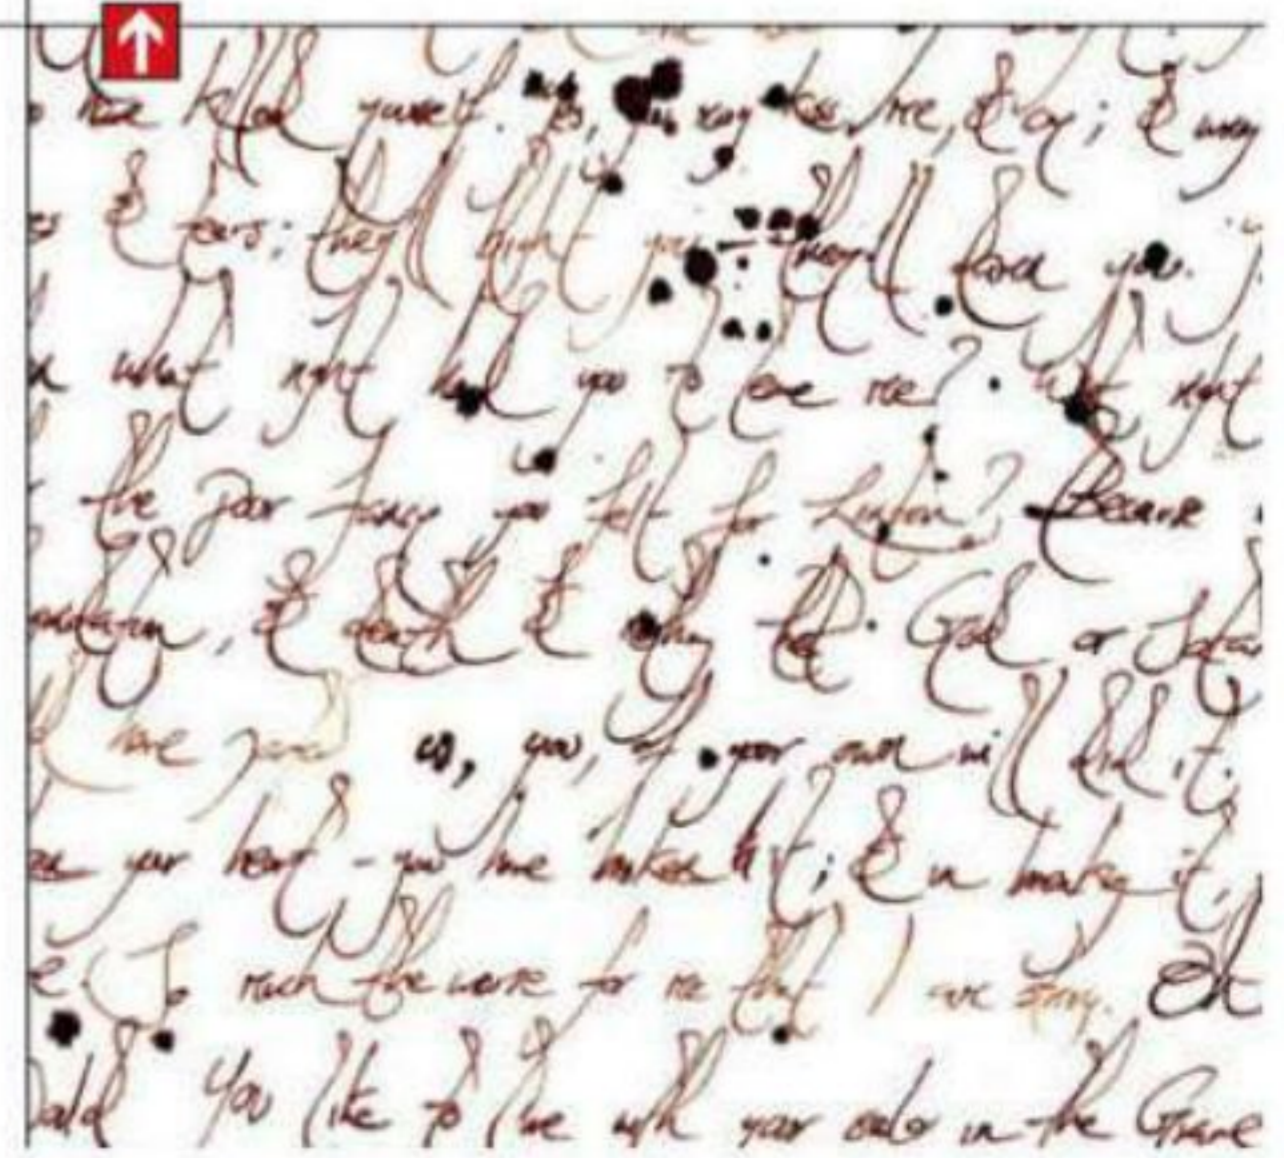 have killed yourself. Yes, you may kiss me, & cry; & wring
& tears; they'll blight you — they'll damn you.
what right had you to leave me? What right
the poor fancy you felt for Linton? Because
, & death & nothing that God or Satan
have you, of your own will did it.
your heart - you have broken it; & in breaking it,
So much the worse for me that I am strong.
you like to live with your in the Grave